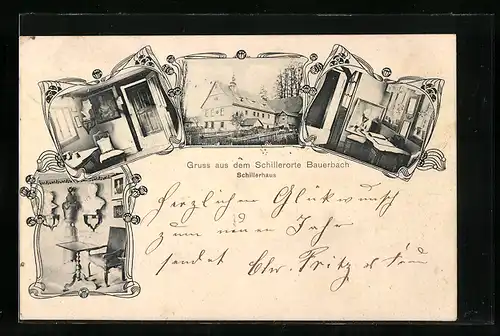 Gruss aus dem Schillerorte Bauerbach
Schillerhaus
Herzlichen Glükwunsch
zum neuen Jahr
sendet Chr. Fritz & Frau